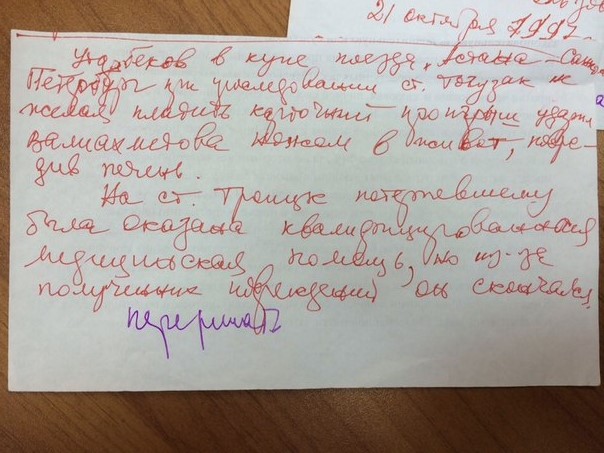 21 октября 1997.
в купе поезда „Астана – Санкт
Петербург при следовании ст. Тогузак не
желая платить карточный проигрыш ударил
Валиахметова ножом в живот, повре-
див печень.
На ст. Троицк потерпевшему
была оказана квалифицированная
медицинская помощь, но из-за
полученных повреждений он скончался.